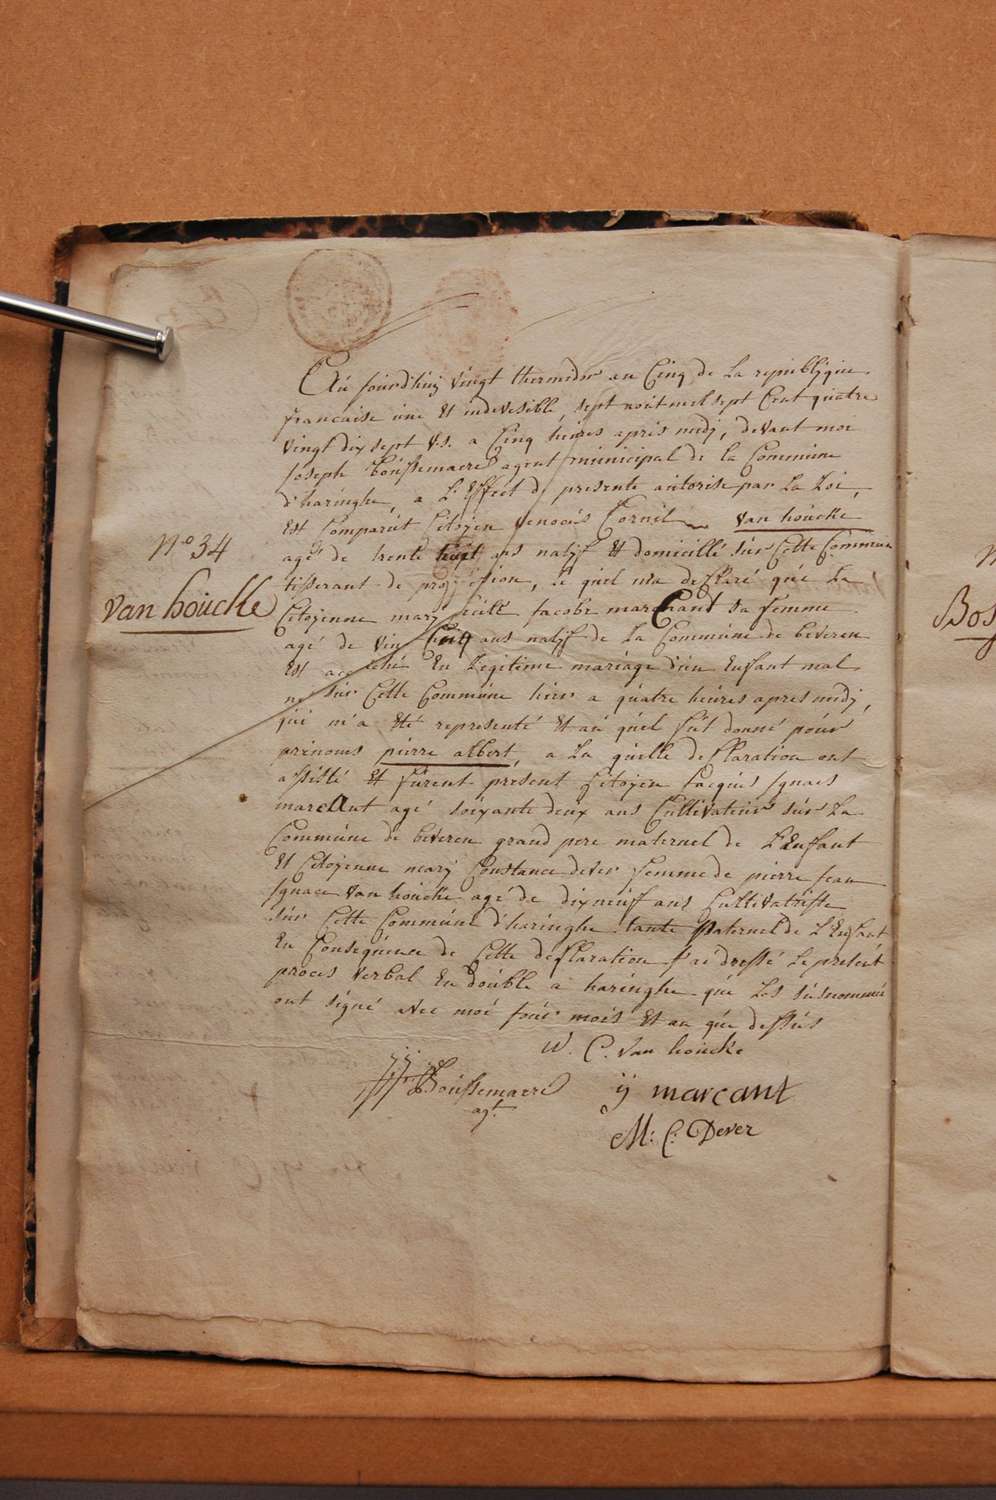 Au jourd'huÿ vingt thermidor an Cinq de la republyque
francaise une et indevesible, sept aout mil sept Cent quatre
vingt dix sept v.s. a Cinq heures apres midj, devant moi
Joseph Boussemaere agent municipal de la Commune
d'haringhe, a L'Effect de presente autorise par La Loi,
Est Comparut Citoyen Cornil van houcke
agé de trente huit ans natif et domicillé sur Cette Commune
tisserant de profession, le quel m'a desclaré que La
Citoyenne marj Jacobe marchant sa femme
agé de vin Cinq ans natif de La Commune de beveren
Est En Legitime mariage d'un Enfant mal
né sur Cette Commune hier a quatre heures apres midj,
qui m'a Eté representé et au quel fut donné pour
prenoms pierre albert, a La quelle desclaration ont
assisté et furent present Citoyen Jacques Ignaes
marcant agé soixante deux ans Cultivateur sur La
Commune de beveren grand pere maternel de L'Enfant
Et Citoyenne marj Constance dever femme de pierre jean
Ignace van houcke agé de dix neuf ans Cultivatriste
sur Cette Commune d'haringhe tante paternel de L'Enfant
En Consequence de Cette desclaration J'ai dressé Le present
proces verbal En double a haringhe que Les susnommé
ont signé avec moi jour mois Et an que dessus
N° 34
van houcke
W. C. van houcke
Boussemaere
agt.
ÿ marcant
M: C: Dever
Bos